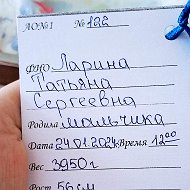 ЛО№1 № 122
ФИО Ларина
Татьяна
Сергеевна
Родила мальчика
Дата 24.01.2024 Время 12⁰⁰
Вес 3950 г
Рост 56 см